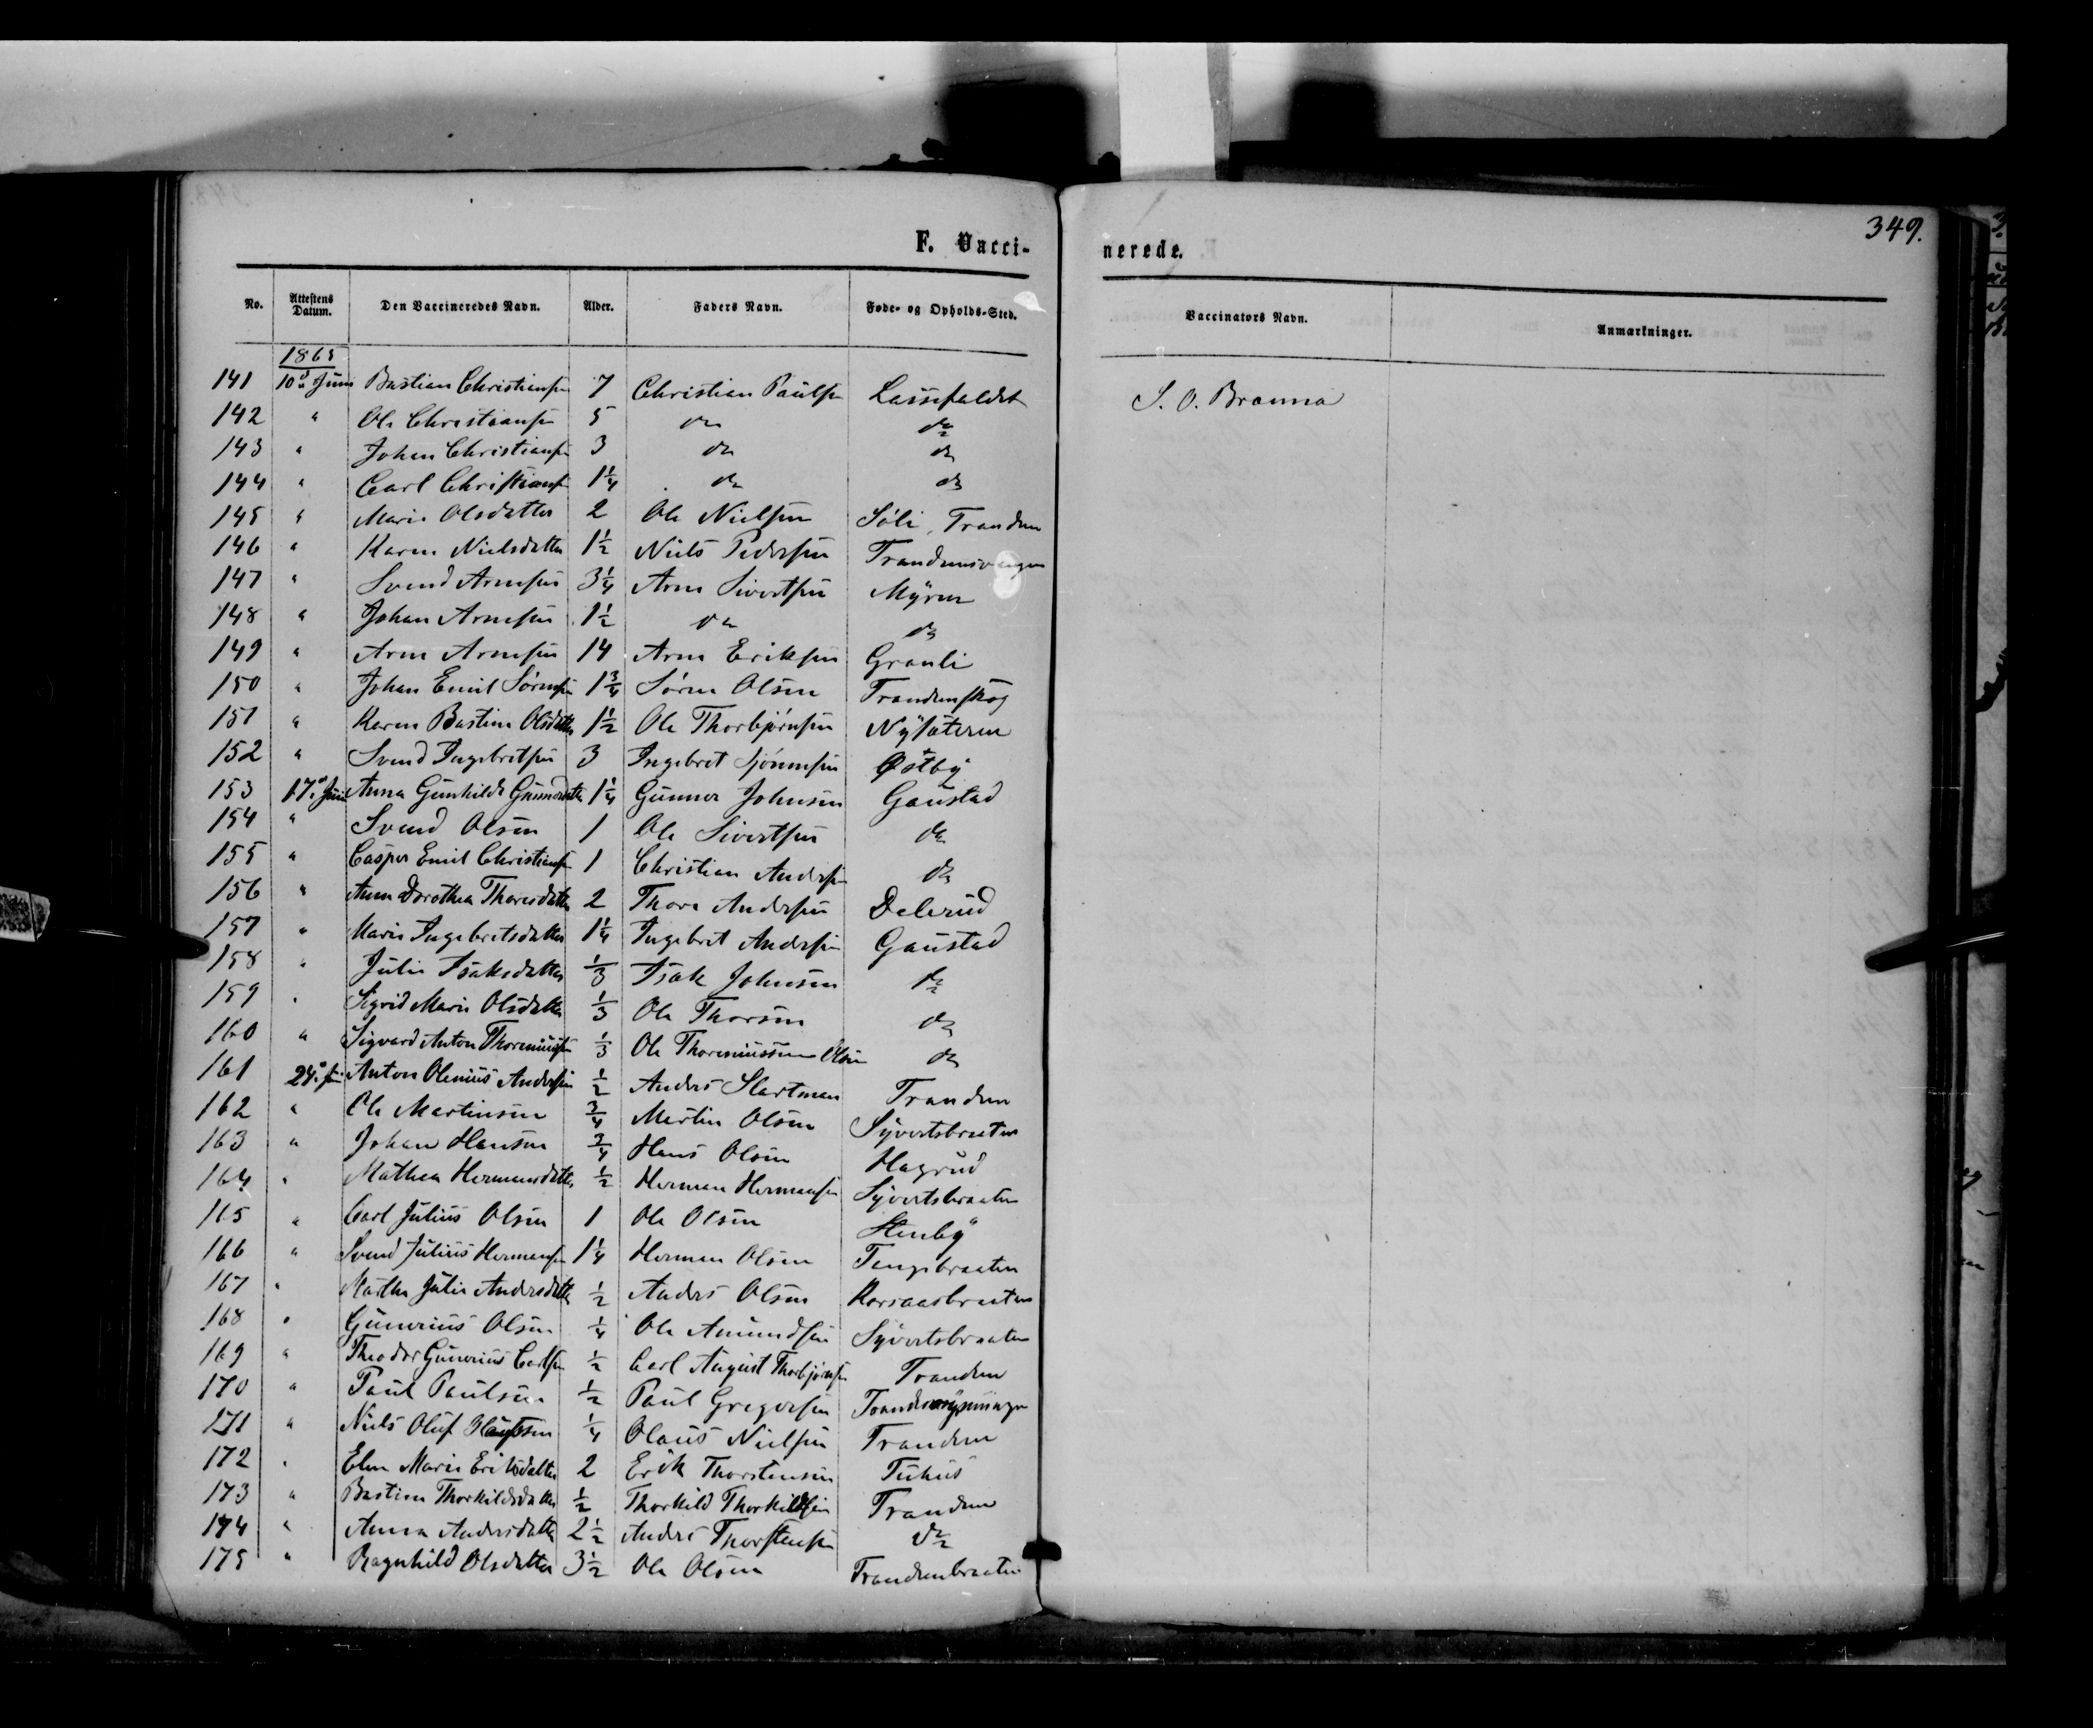 349.
F. Vacci-nerede.
No. Attestens Datum. Den Vaccineredes Navn. Alder. Faders Navn. Føde- og Opholds-Sted. Vaccinators Navn. Anmærkninger.
1865
141 10de Juni Bastian Christiansen 7 Christian Paulsen Lassefaldet S. O. Brænna
142 " Ole Christiansen 5 do do
143 " Johan Christiansen 3 do do
144 " Carl Christiansen 1 1/4 do do
145 " Marie Olsdatter 2 Ole Nielsen Søli, Trandem
146 " Karen Nielsdatter 1 1/2 Niels Pedersen
147 " Svend Arnesen 3 1/4 Arne Sivertsen Myren
148 " Johan Arnesen 1 1/2 do do
149 " Arne Arnesen 14 Arne Eriksen Granli
150 " Johan Emil Sørensen 1 3/4 Søren Olsen Trandemskog
151 " Karen Bastine Olsdatter 1 1/2 Ole Thorbjørnsen Nysæteren
152 " Svend Ingebretsen 3 Ingebret Østby
153 17de Juni Anna Gunhilde Gunnersdatter 1 1/4 Gunner Johnsen Gaustad
154 " Svend Olsen 1 Ole Sivertsen do
155 " Casper Emil Christiansen 1 Christian Andersen do
156 " Anne Dorothea Thoresdatter 2 Thore Andersen Delerud
157 " Marie Ingebretsdatter 1 1/4 Ingebret Andersen Gaustad
158 " Julie Isaksdatter 1/3 Isak Johnsen do
159 " Sigrid Marie Olsdatter 1/3 Ole Thorsen do
160 " Sigvard Anton 1/3 Ole Olsen do
161 24de Juni Anton Olenius Andersen 1/2 Anders Slartman Trandem
162 " Ole Martinsen 3/4 Martin Olsen Syvertsbraaten
163 " Johan Hansen 3/4 Hans Olsen Hagrud
164 " Mathea Hermansdatter 1/2 Herman Hermansen Syvertsbraaten
165 " Carl Julius Olsen 1 Ole Olsen Stenby
166 " Svend Julius Hermansen 1 1/4 Herman Olsen Tangebraaten
167 " Marthe Julie Andersdatter 1/2 Anders Olsen Korsaasbraaten
168 " Gunerius Olsen 1/4 Ole Amundsen Syvertsbraaten
169 " Theodor Gunerius Carlsen 1/2 Carl August Thorbjørnsen Trandem
170 " Paul Paulsen 1/2 Paul Gregersen
171 " Niels Oluf 1/4 Olaus Nielsen Trandem
172 " Elen Marie Eriksdatter 2 Erik Thorstensen Tuhus
173 " Bastine Thorkildsdatter 1/2 Thorkild Thorkildsen Trandem
174 " Anna Andersdatter 2 1/2 Anders Thorstensen do
175 " Ragnhild Olsdatter 3 1/2 Ole Olsen Trandembraaten